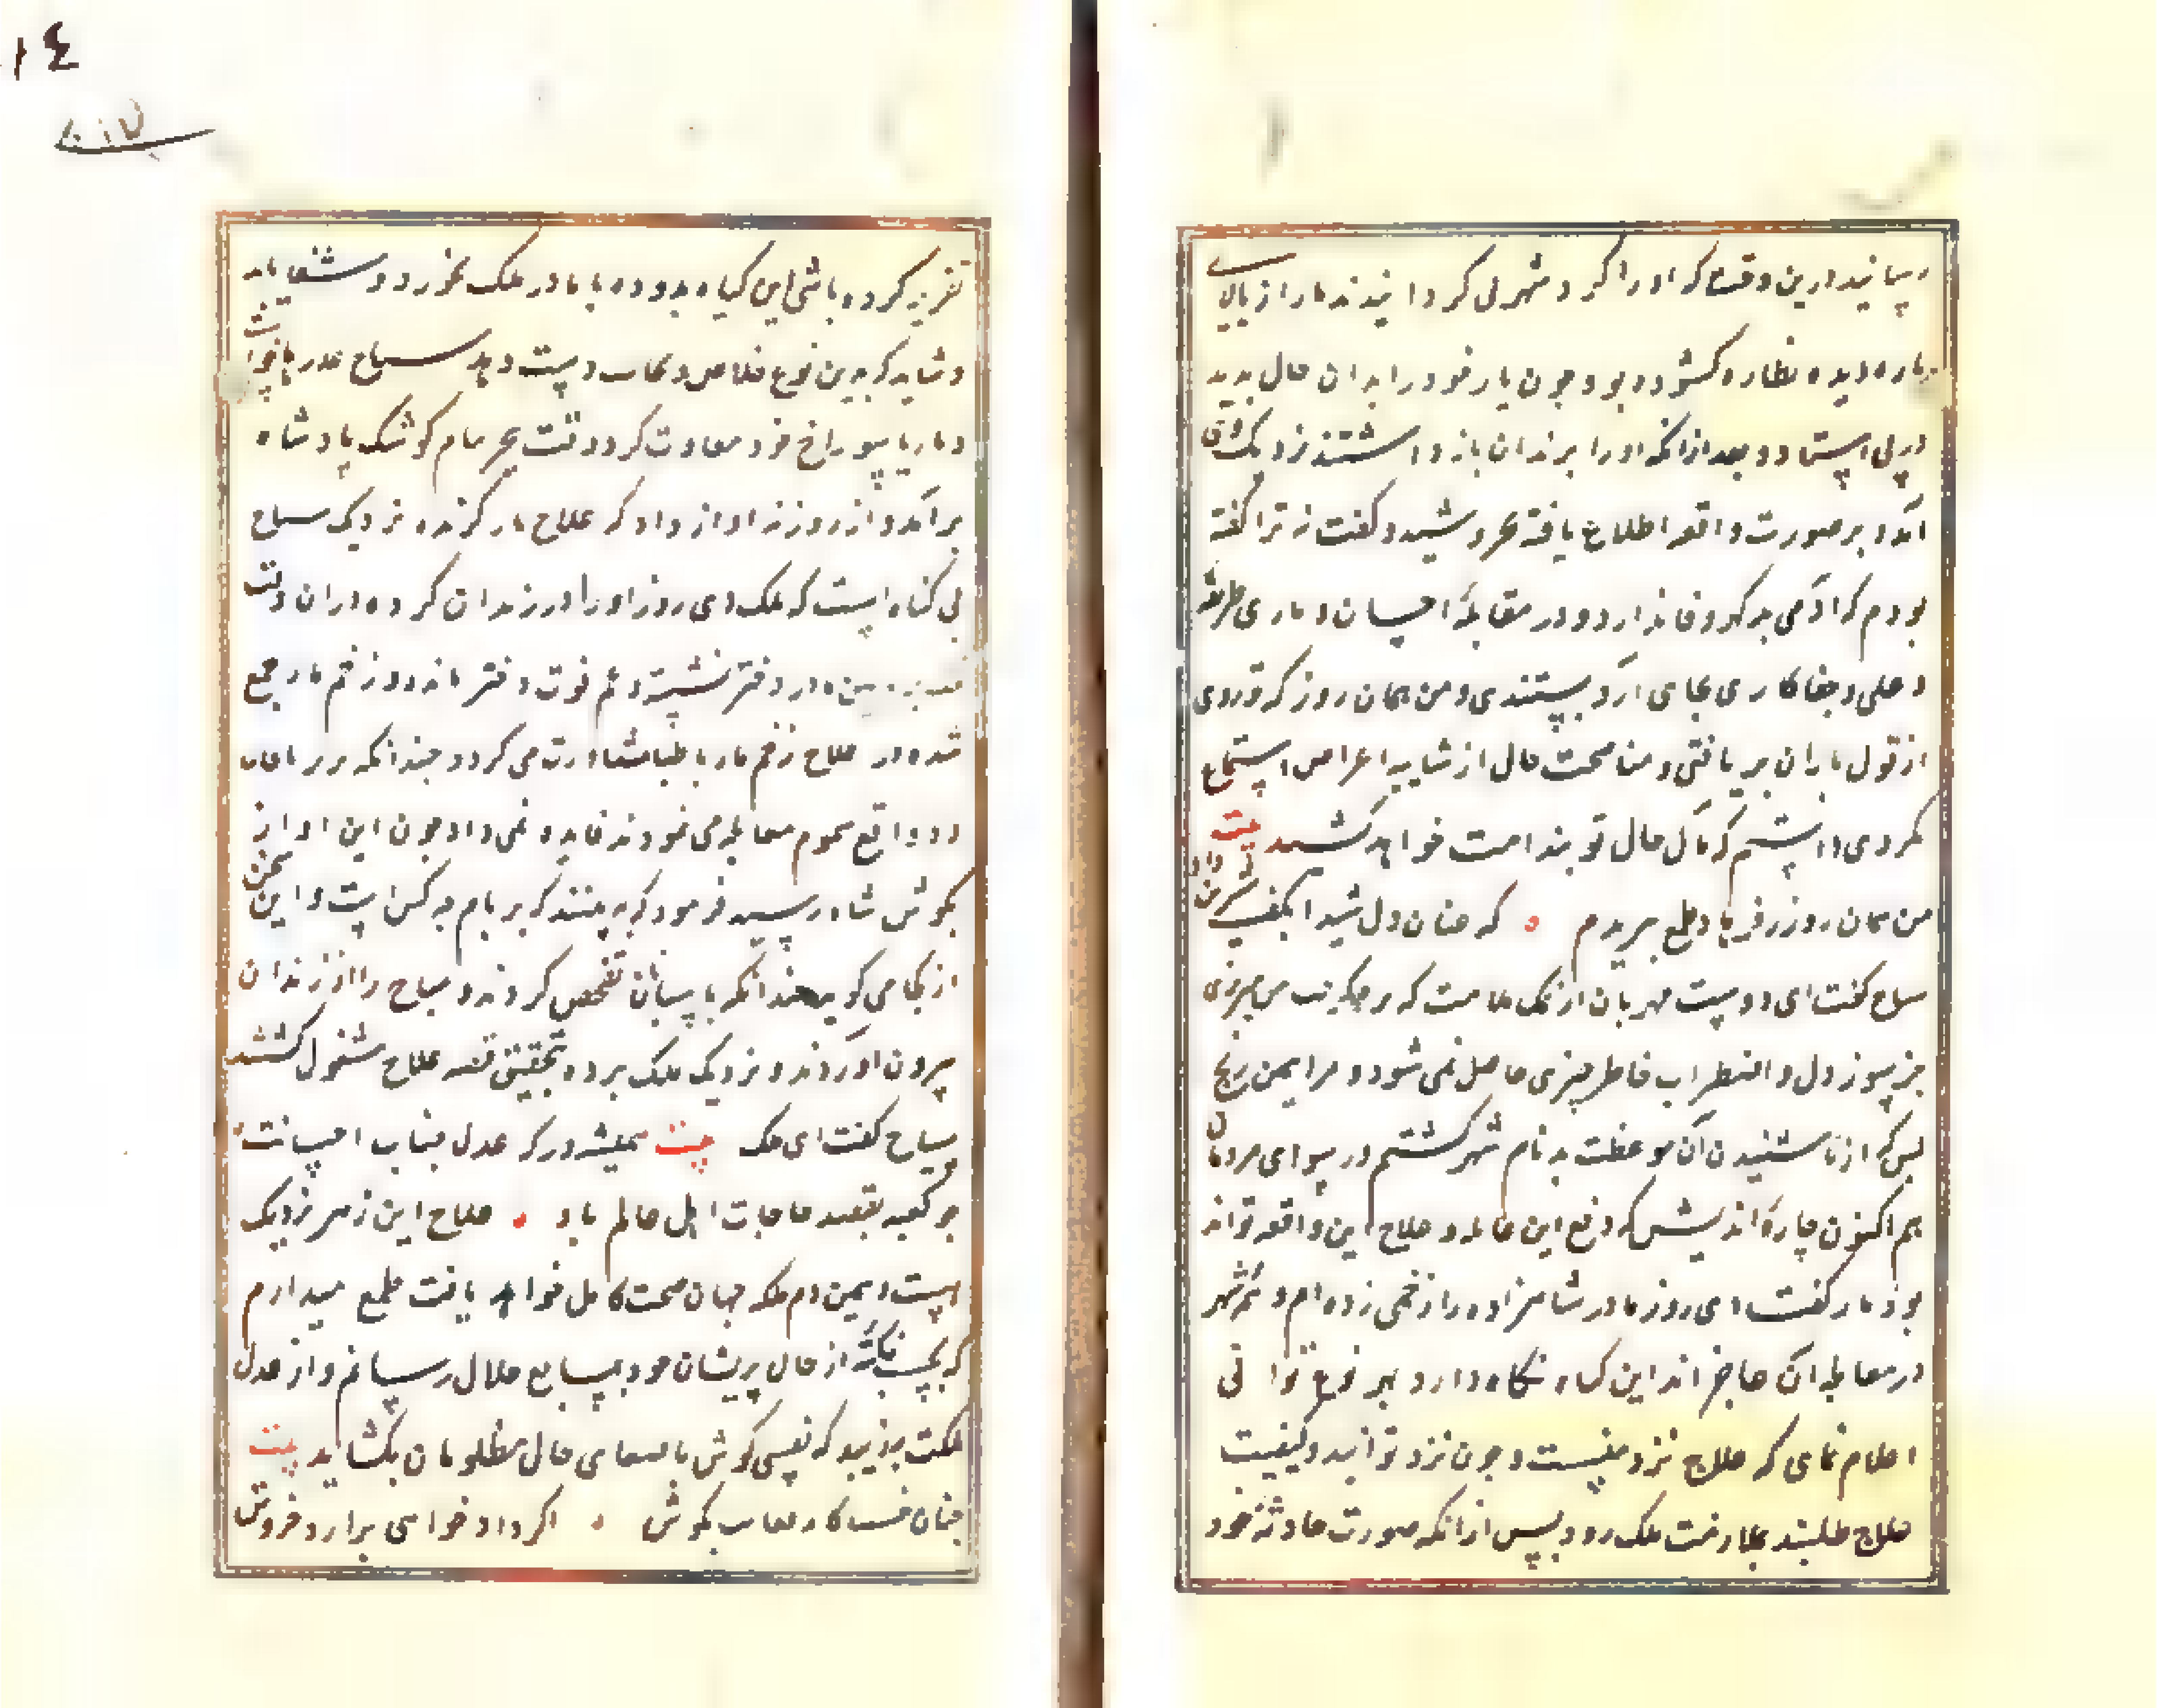 رسانید درین وقت که او را کرد شهر می کردانیدند مار از بالای
باره دیده نظاره کشوده بود چون یار خود را بدان حال بدید
در پی ایستاد و بعد از انکه او را بزندان باز داشتند نزدیک وی
آمد و بر صورت واقعه اطلاع یافته بخروشید و کفت نه ترا کفته
بودم که آدمی بد کهر وفا ندارد و در مقابلهٔ احسان و ماری طریقه
و جفا کاری بجای آرد بپسندی و من همان روز که تو روی
از قول یاران بر تافتی و مناصحت حال از شایبه اعراض استماع
نکردی دانستم که مآل حال تو بندامت خواهد کشید بیت
من همان روز ز فرهاد طمع ببریدم که عنان دل شیدا بکف شیرین داد
سیاح کفت ای دوست مهربان از نمک ملامت که بر جراحت من میریزی
جز سوز دل و اضطراب خاطر چیزی حاصل نمی شود و مرا همین رنج
بس که از ناشنیدن آن موعظت بدنام شهر کشتم و رسوای مردمان
هم اکنون چارهٔ اندیش که دفع این غایله و علاج این واقعه تواند
بود مار کفت دی روز مادر شاهزاده را زخمی زده ام و همه شهر
در معالجه آن عاجز اند این کیاه نکاه دار و بهر نوع توانی
اعلام نمای که علاج نزد منست و چون نزد تو آیند و کیفیت
علاج طلبند بملازمت ملک رو و پس از انکه صورت حادثه خود
تقریر کرده باشی این کیاه بدو ده تا مادر ملک بخورد و شفا یابد
و شاید که بدین نوع خلاص و نجات دست دهد سیاح عذرها خواست
و مار با سوراخ خود معاودت کرد وقت سحر ببام کوشک پادشاه
بر آمد و از روزنه آواز داد که علاج مار کزنده نزدیک سیاح
بی کناه است که ملک دی روز او را در زندان کرده در ان وقت
مادر دفتر نشسته و غم فوت دختر مانده و زخم مار جمع
شده در علاج زخم مار با اطبا مشاورت می کرد و چندانکه بتریاقات
و دوافع سموم معالجه می نمودند فایده نمی داد چون این آواز
بکوش شاه رسید فرمود که ببینند که بر بام چه کس است و این سخن
از کجا می کوید چندانکه پاسبانان تفحص کردند و سیاح را از زندان
بیرون آوردند و نزدیک ملک برده بتحقیق قصه علاج مشغول کشتند
سیاح کفت ای ملک بیت همیشه درکه عدل جناب احسانت
چو کعبه مقصد حاجات اهل عالم باد علاج این زهر نزدیک
منست و یمین دم ملکه جهان صحت کامل خواهد یافت طمع میدارم
که نکته از حال پریشان خود بمسامع جلال رسانم و از عدل
ملکت بزیبد که نفسی کوش باصغای حال مظلومان بکشاید بیت
چنان خسب کاید فغانت بکوش اکر دادخواهی برارد خروش